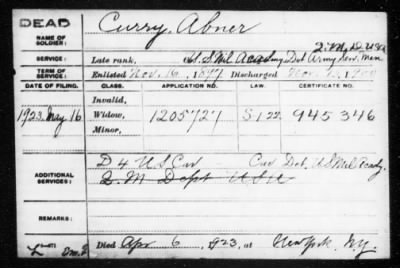 DEAD
NAME OF SOLDIER: Curry, Abner
Q.M.D. USA
SERVICE: Late rank, U.S. Mil Academy Det Army Serv. Men
TERM OF SERVICE: Enlisted Nov. 16, 1897 Discharged Nov. 1900
DATE OF FILING. CLASS. APPLICATION NO. LAW. CERTIFICATE NO.
Invalid,
1923 May 16 Widow, 1205727 S122 945346
Minor,
ADDITIONAL SERVICES: D 4 U S Cav Cav Det. US Mil Acady.
Q.M Dept USA
REMARKS:
Died Apr 6, 1923, at New York N.Y.